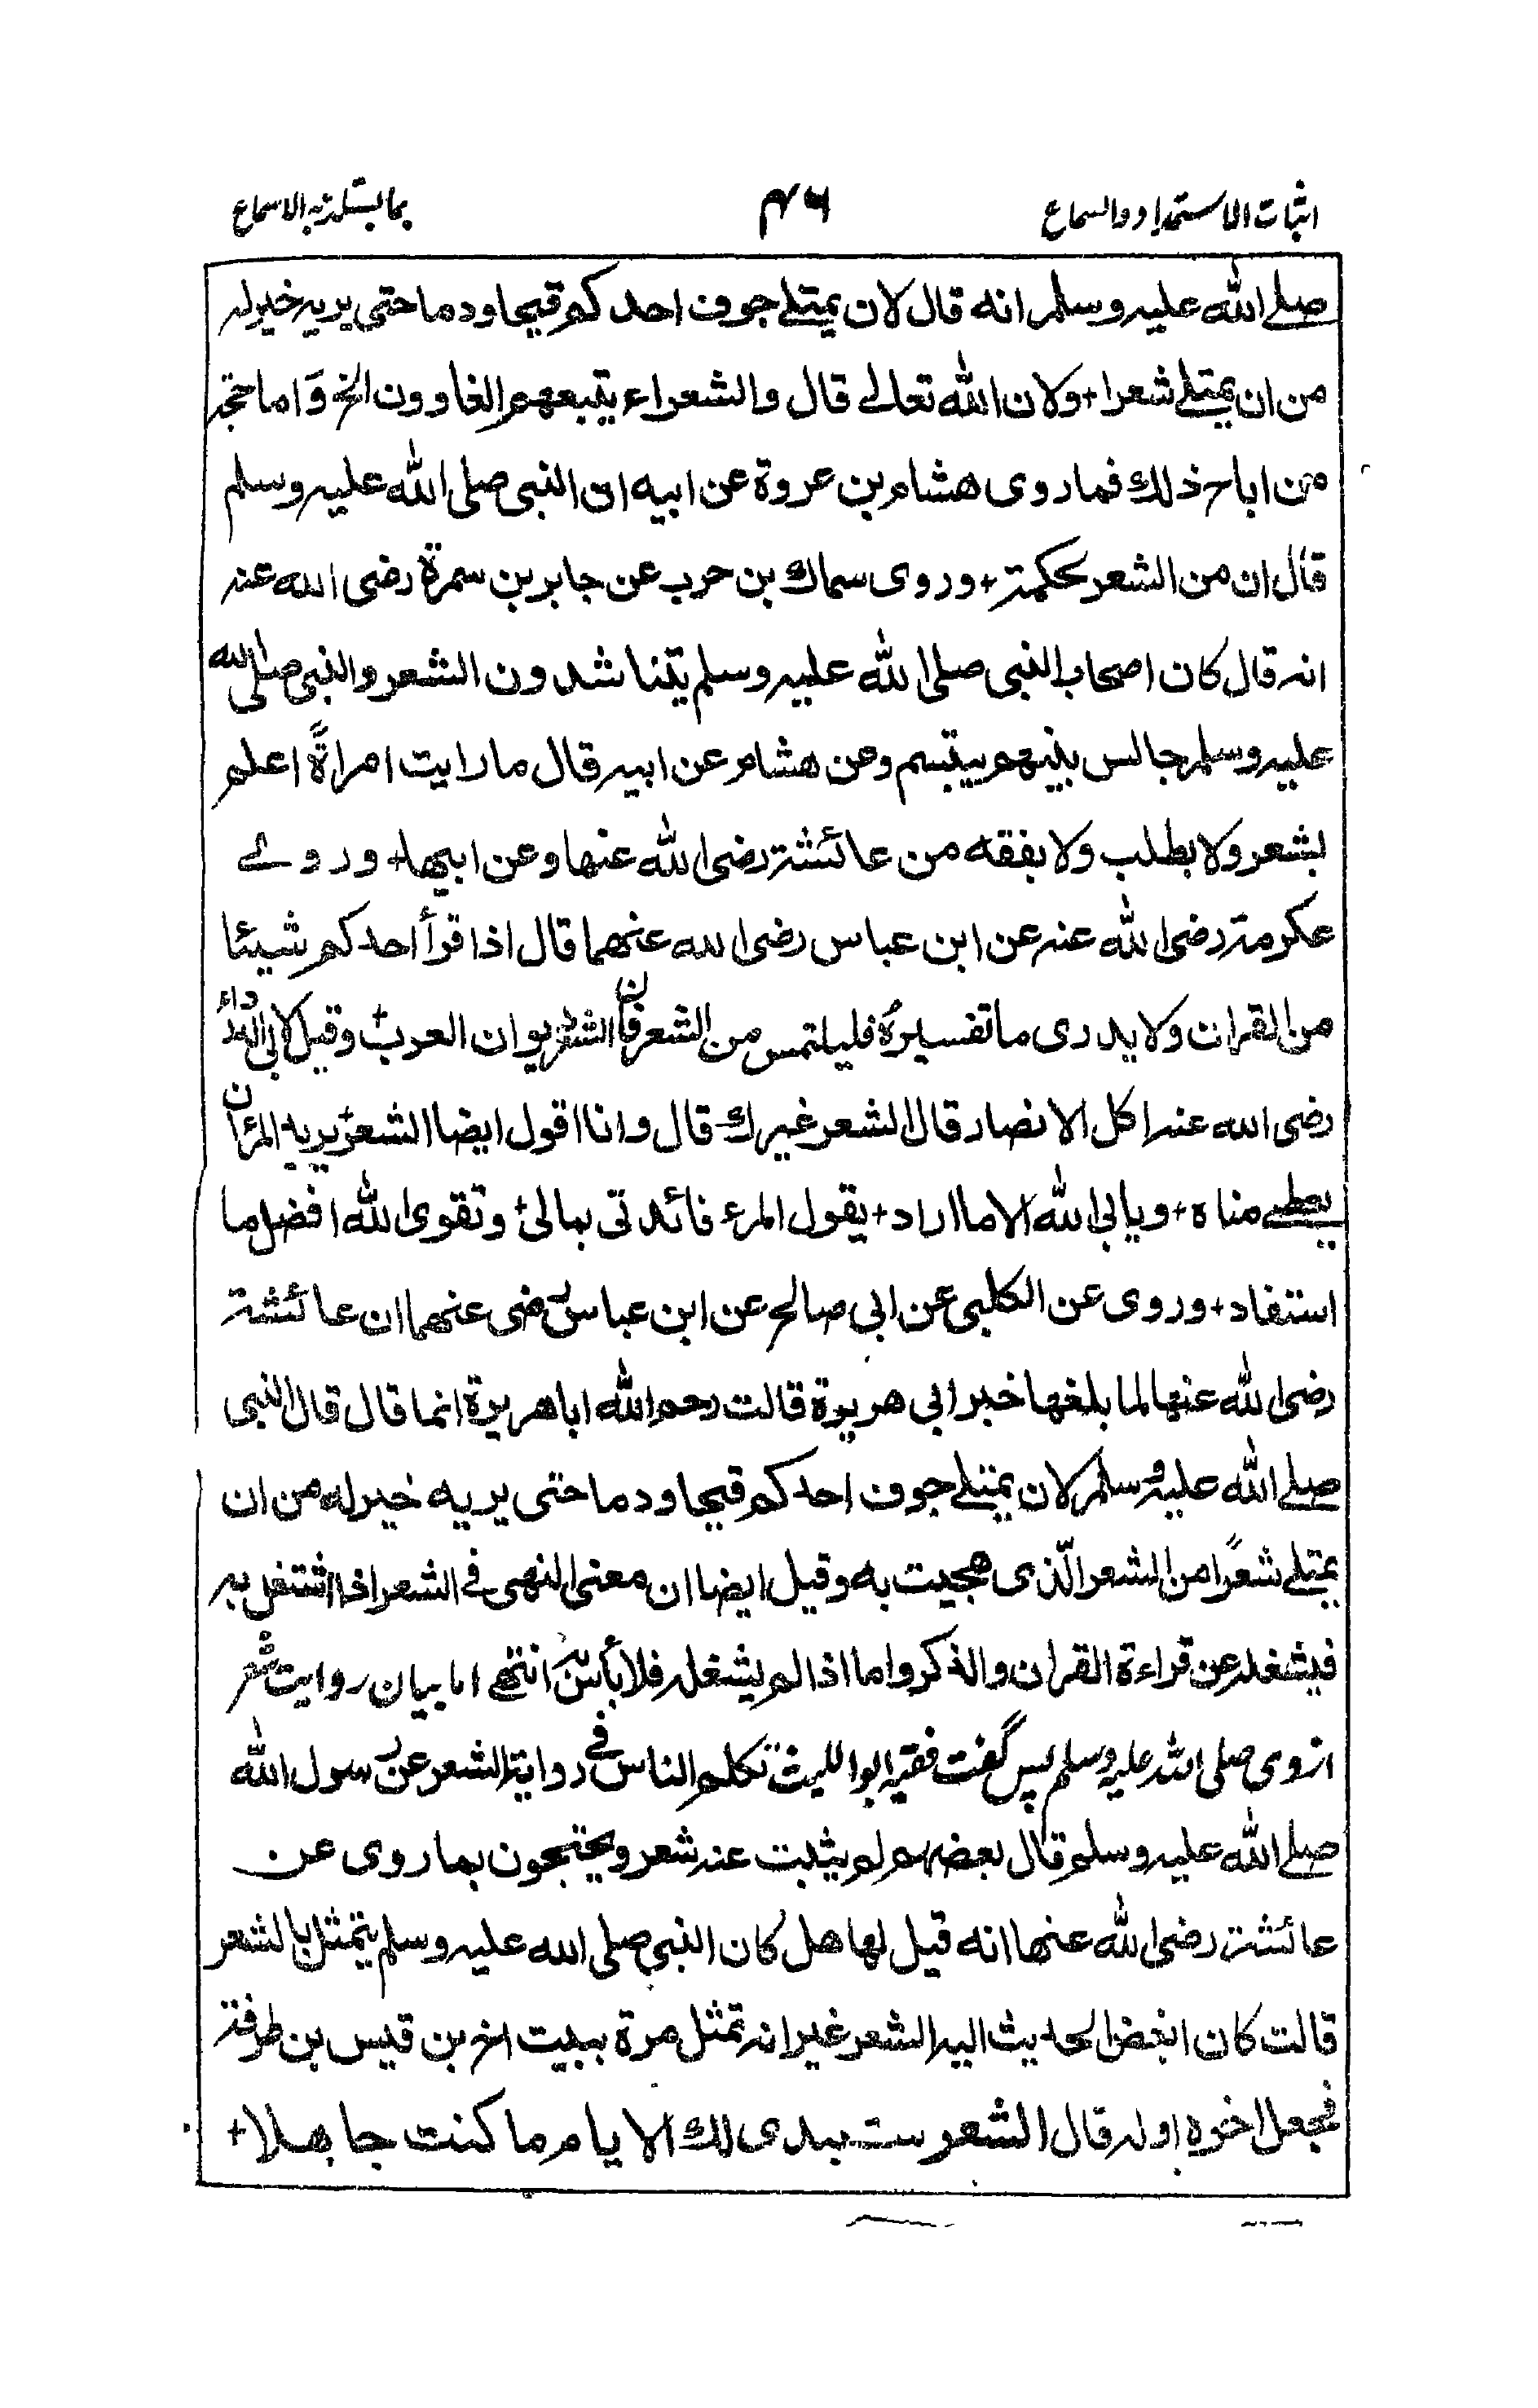 اثبات الاستمداد والسماع ۴۶ بما یستلذ به الاسماع
صلے الله علیه وسلم انه قال لان یمتلے جوف احدکم قیحا ودما حتی یریه خیرله
من ان یمتلے شعرا + ولان الله تعالے قال والشعراء یتبعهم الغاوون الخ وَاما حجة
من اباح ذلك فما روی هشام بن عروة عن ابیه ان النبی صلی الله علیه وسلم
قال ان من الشعر لحکمة + وروی سماك بن حرب عن جابر بن سمرة رضی الله عنه
انه قال کان اصحاب النبی صلی الله علیه وسلم یتناشدون الشعر والنبی صلی الله
علیه وسلم جالس بینهم یتبسم وعن هشام عن ابیه قال ما رایت امراةً اعلم
بشعر ولا بطلب ولا بفقه من عائشة رضی الله عنها وعن ابیها + وروے
عکرمة رضی الله عنه عن ابن عباس رضی الله عنهما قال اذا قرأ احدکم شیئا
من القران ولا یدری ما تفسیره فلیلتمس من الشعر فان الشعر دیوان العرب + وقیل لابی الدرداء
رضی الله عنه اکل الانصار قال الشعر غیرك قال وانا اقول ایضا الشعر + یرید المرء ان
یعطے مناه + ویابی الله الا ما اراد + یقول المرء فائدتی بمالی + وتقوی الله افضل ما
استفاد + وروی عن الکلبی عن ابی صالح عن ابن عباس رضی عنهما ان عائشة
رضی الله عنها لما بلغها خبر ابی هریرة قالت رحم الله اباهریرة انما قال قال النبی
صلے الله علیه وسلم لان یمتلے جوف احدکم قیحا ودما حتی یریه خیر له من ان
یمتلے شعرًا من الشعر الّذی هجیت به وقیل ایضا ان معنی النهی فی الشعر اذا اشتغل به
فیشغله عن قراءة القران والذکر واما اذا لم یشغله فلا بأس به انتهے اما بیان روایت شعر
ازوی صلی الله علیه وسلم پس گفت فقیه ابو اللیث تکلم الناس فے روایة الشعر عن رسول الله
صلے الله علیه وسلم قال بعضهم لم یثبت عنه شعر ویحتجون بما روی عن
عائشة رضی الله عنها انه قیل لها هل کان النبی صلی الله علیه وسلم یتمثل بالشعر
قالت کان ابغض الحدیث الیه الشعر غیر انه تمثل مرة ببیت اخ بن قیس بن طرفة
فجعل اخوه اوله قال الشعر ستبدی لك الایام ما کنت جاهلا +